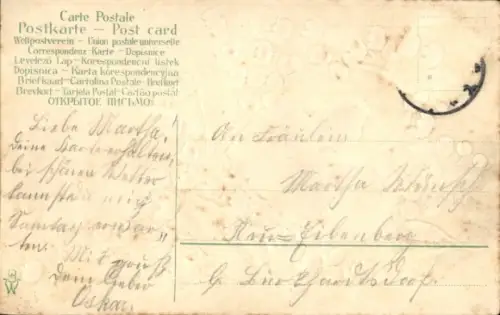 Carte Postale
Postkarte — Post card
Weltpostverein – Union postale universelle
Correspondenz-Karte – Dopisnice
Levelező Lap – Korespondenční listek
Dopisnica – Karta korespondencyjna
Briefkaart – Cartolina Postale – Brefkort
Brevkort – Tarjeta Postal – Cartão postal
ОТКРЫТОЕ ПИСЬМО
Liebe Martha!
Deine Karte erhalten,
bei schönen Wetter
kannst du mich
Sonntag erwar-
ten.
Mit Gruß
Dein lieber
Oskar.
An Fräulein
Martha
Neu-Eibenberg
b. Burkhardtsdorf.